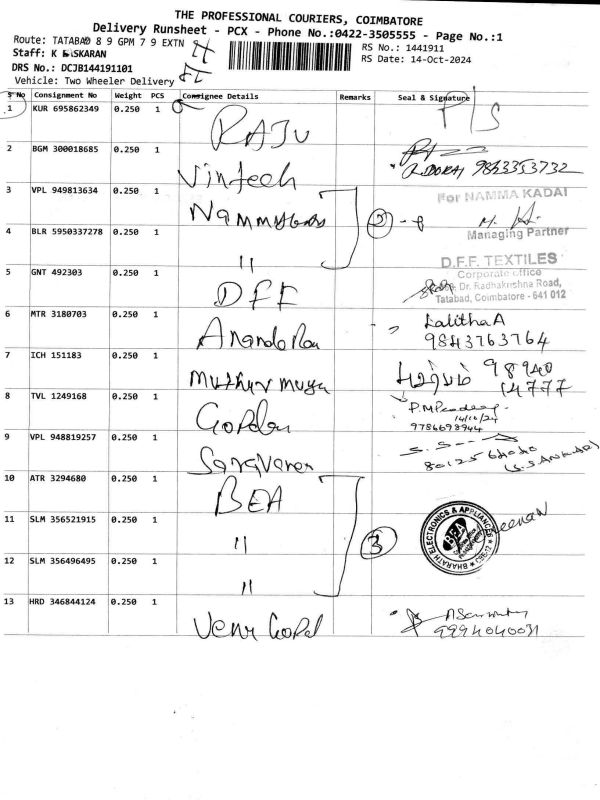 THE PROFESSIONAL COURIERS, COIMBATORE
Delivery Runsheet - PCX - Phone No.:0422-3505555 - Page No.:1
Route: TATABAD 8 9 GPM 7 9 EXTN
RS No.: 1441911
Staff: K BASKARAN
RS Date: 14-Oct-2024
DRS No.: DCJB144191101
Vehicle: Two Wheeler Delivery
S No Consignment No Weight PCS Consignee Details Remarks Seal & Signature
1 KUR 695862349 0.250 1 RAJU P/S
2 BGM 300018685 0.250 1 Vintech 9843353732
3 VPL 949813634 0.250 1 For NAMMA KADAI
Managing Partner
4 BLR 5950337278 0.250 1 "
2
5 GNT 492303 0.250 1 DFF D.F.F. TEXTILES
Corporate office
Dr. Radhakrishna Road,
Tatabad, Coimbatore - 641 012
6 MTR 3180703 0.250 1 Lalitha A
9843763764
7 ICH 151183 0.250 1 98940
14777
8 TVL 1249168 0.250 1 Gopalan
14/10/24
9786698944
9 VPL 948819257 0.250 1 Saravanan
(S.SANKAR)
10 ATR 3294680 0.250 1 BEA
11 SLM 356521915 0.250 1 "
BHARATH ELECTRONICS & APPLIANCES
BEA
12 SLM 356496495 0.250 1 "
3
13 HRD 346844124 0.250 1 Venu Gopal
9994040031